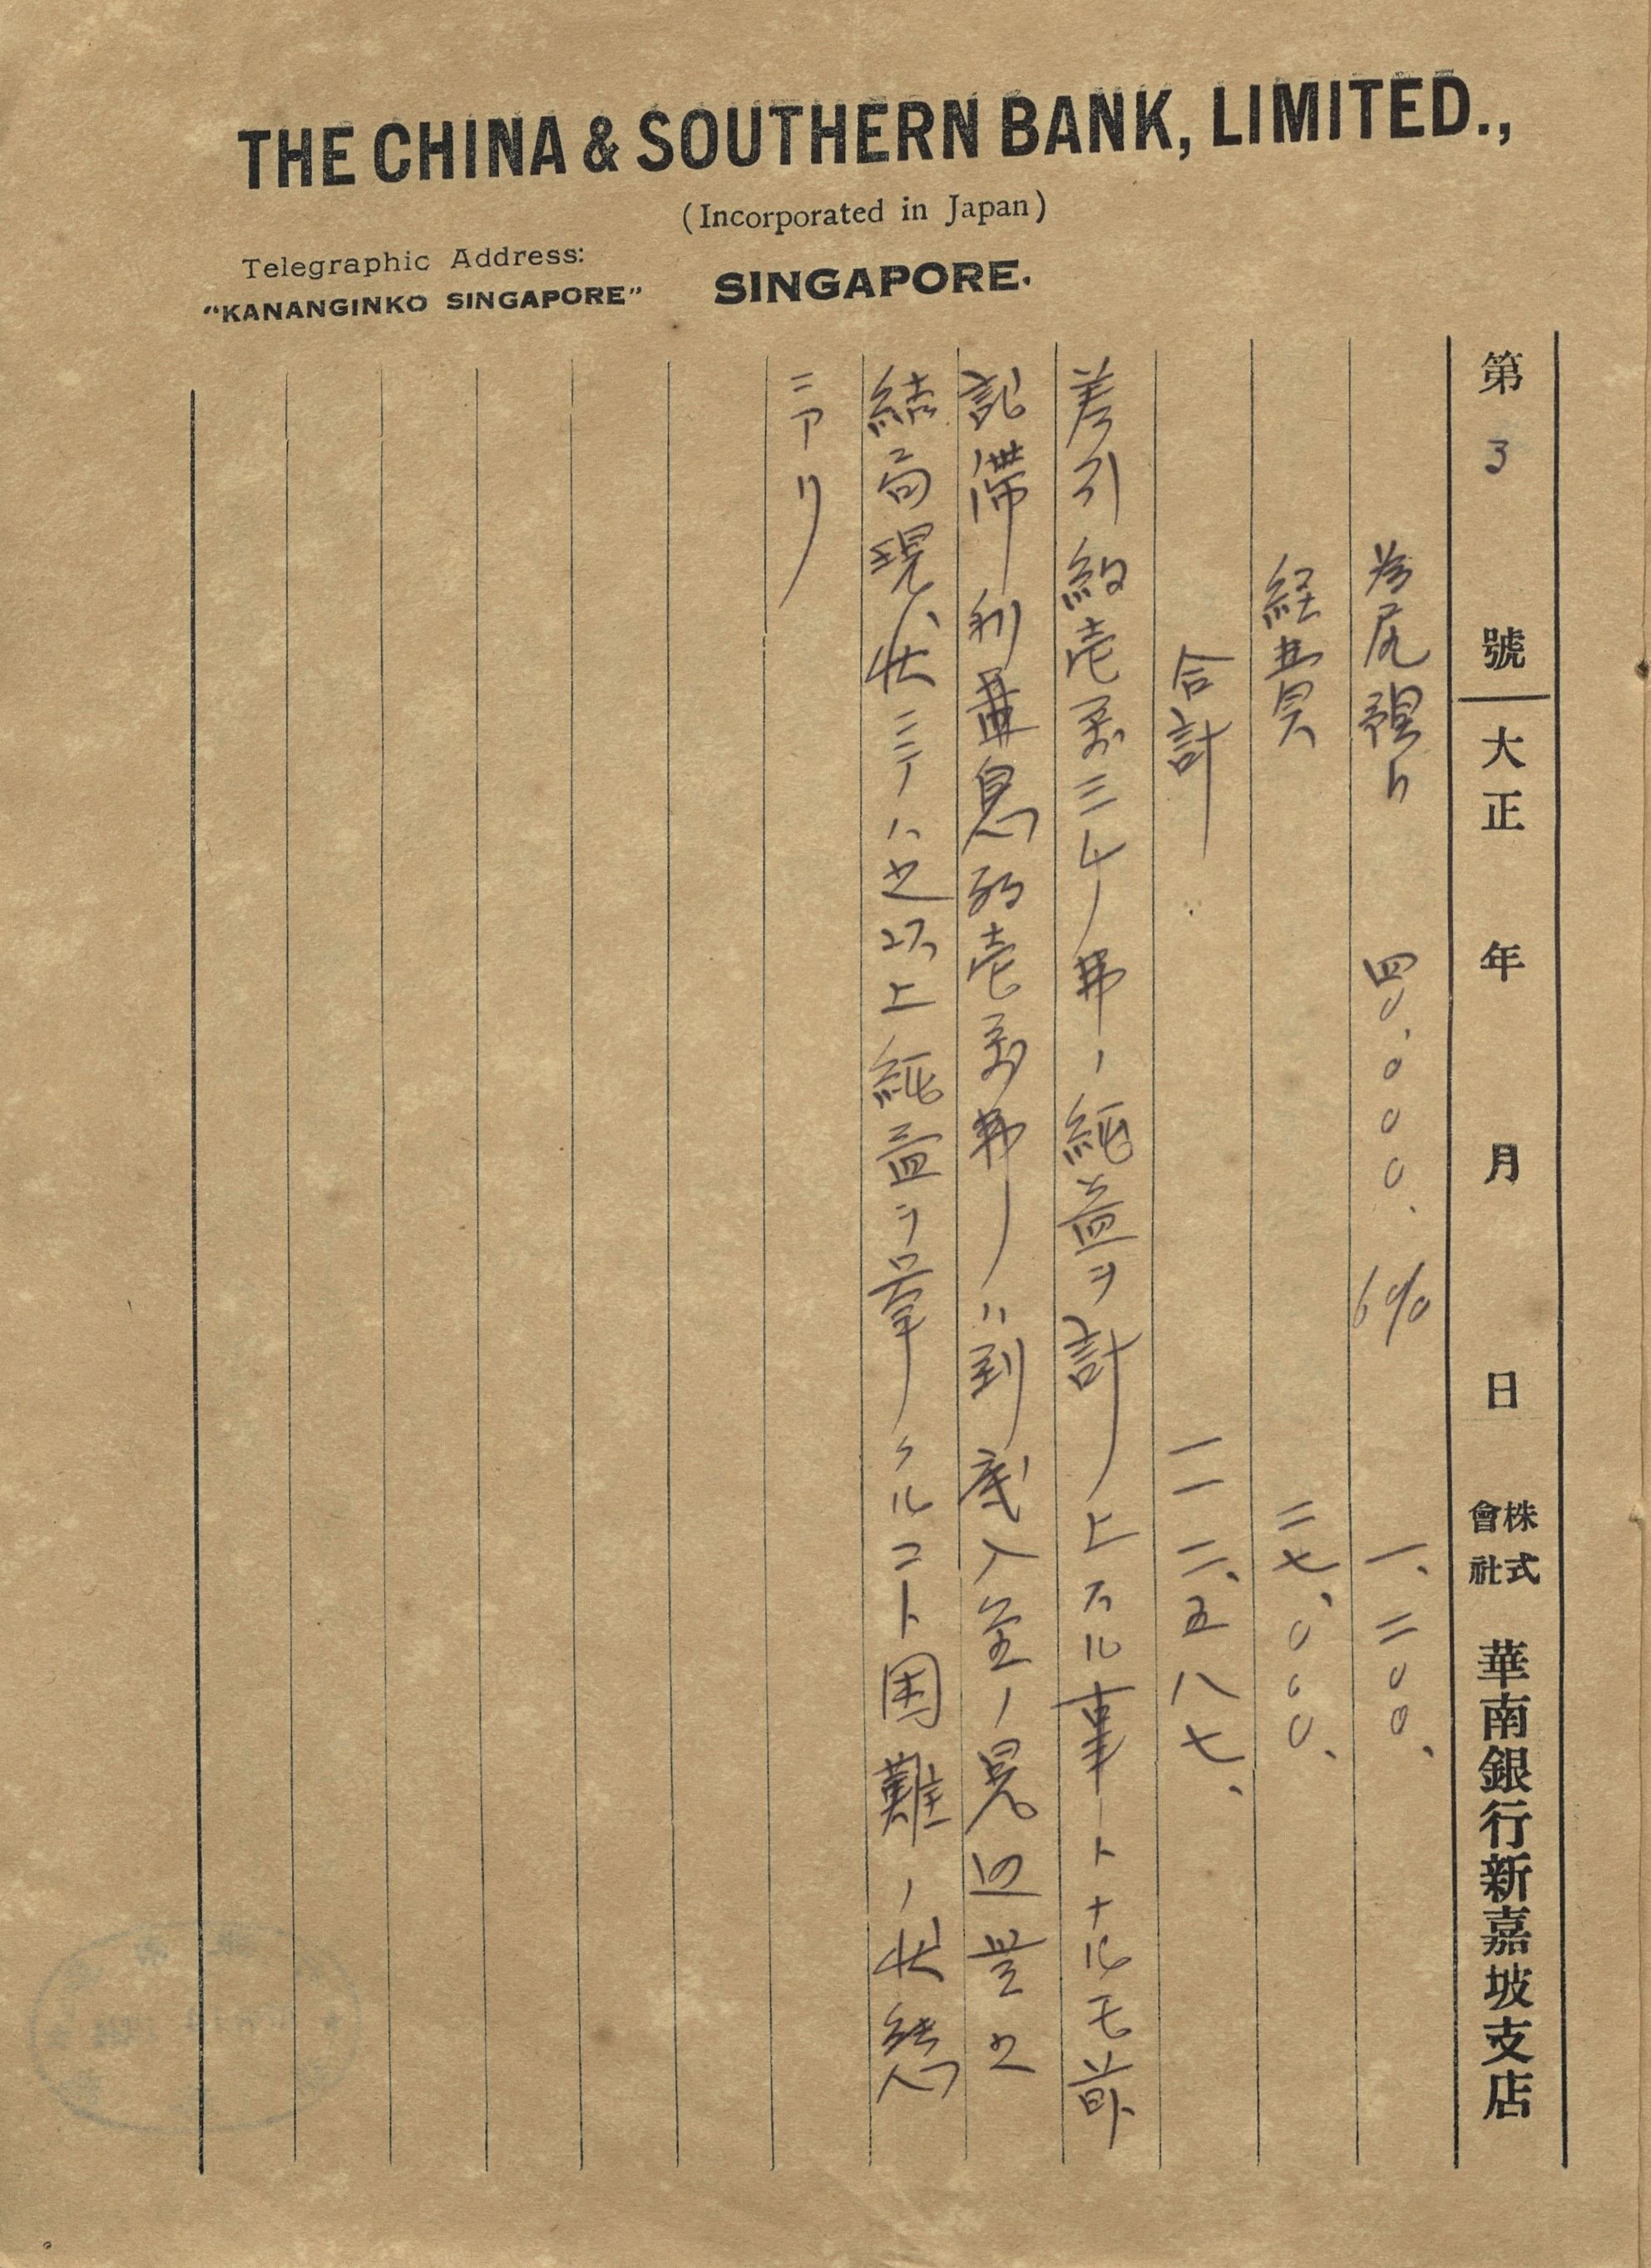 THE CHINA & SOUTHERN BANK, LIMITED.,
(Incorporated in Japan)
Telegraphic Address:
"KANANGINKO SINGAPORE"
SINGAPORE.
第 3 號 大正 年 月 日 株式會社 華南銀行新嘉坡支店
為尻預り 四〇、〇〇〇、 6% 一、二〇〇、
経費 二七、〇〇〇、
合計 一一二、五八七、
差引約壱万三千弗ノ純益ヲ計上スル事トナルモ前
記滞利息約壱万弗ノハ到底入金ノ見込無之
結局現状ニテハ之以上純益ヲ挙クルコト困難ノ状態
ニアリ